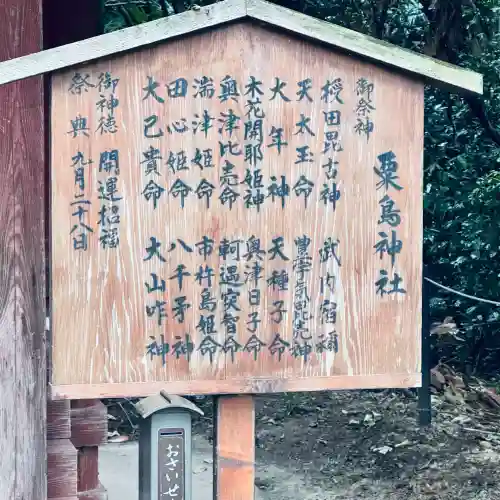 粟島神社
御祭神
猨田毘古神 武内宿禰
天太玉命 豊宇気毘売神
大年神 天種子命
木花開耶姫神 奥津日子命
奥津比売命 軻遇突智命
湍津姫命 市杵島姫命
田心姫命 八千矛神
大己貴命 大山咋神
御神徳 開運招福
祭典 九月二十八日
おさいせ